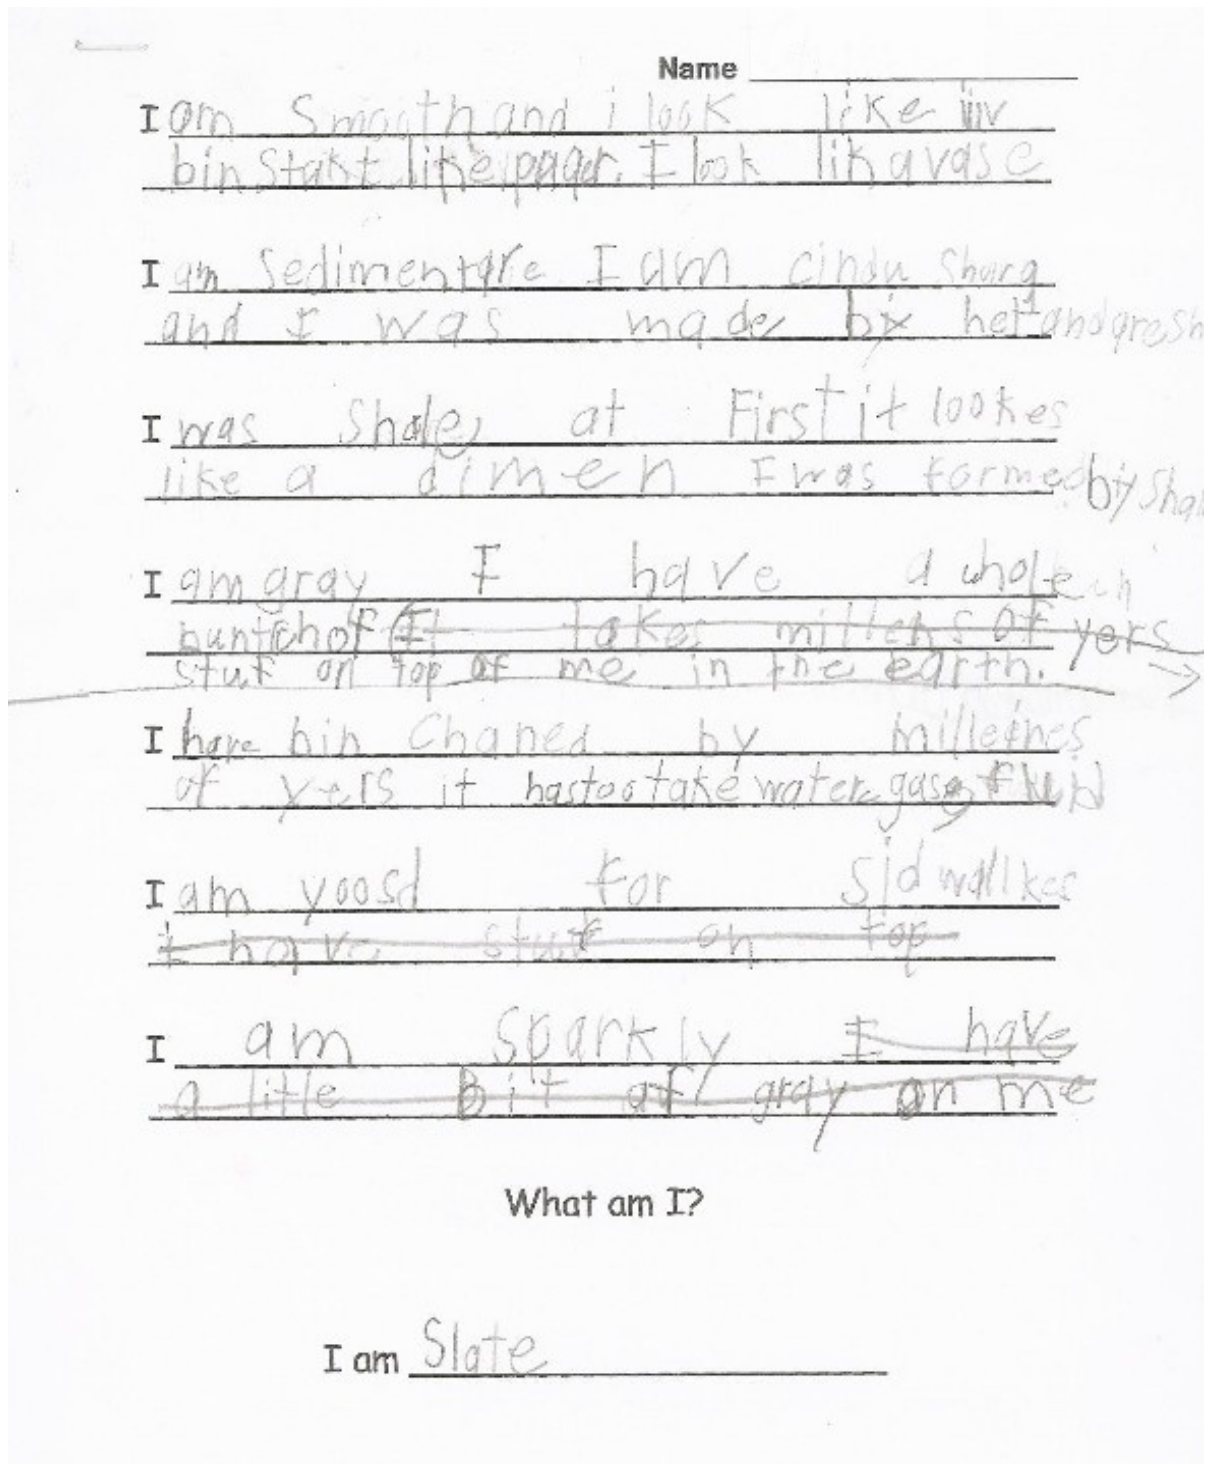 Name
I am Smooth and i look like iiv
bin Stakt like paper. I look lik a vase
I am Sedimentare I am cindu Sharg
and I was made by het and presh
I was Shale, at First it lookes
like a dimen I was formed by Shal
I am gray I have a whole
buntch of It takes millens of yers
stuf on top of me in the earth.
I have bin Chaned by milleines
of yers it hastoo take water gas, fluid
I am yoosd for Sid wallkes
I have stuf on top
I am Sparkly I have
a litle Bit of gray on me
What am I?
I am Slate